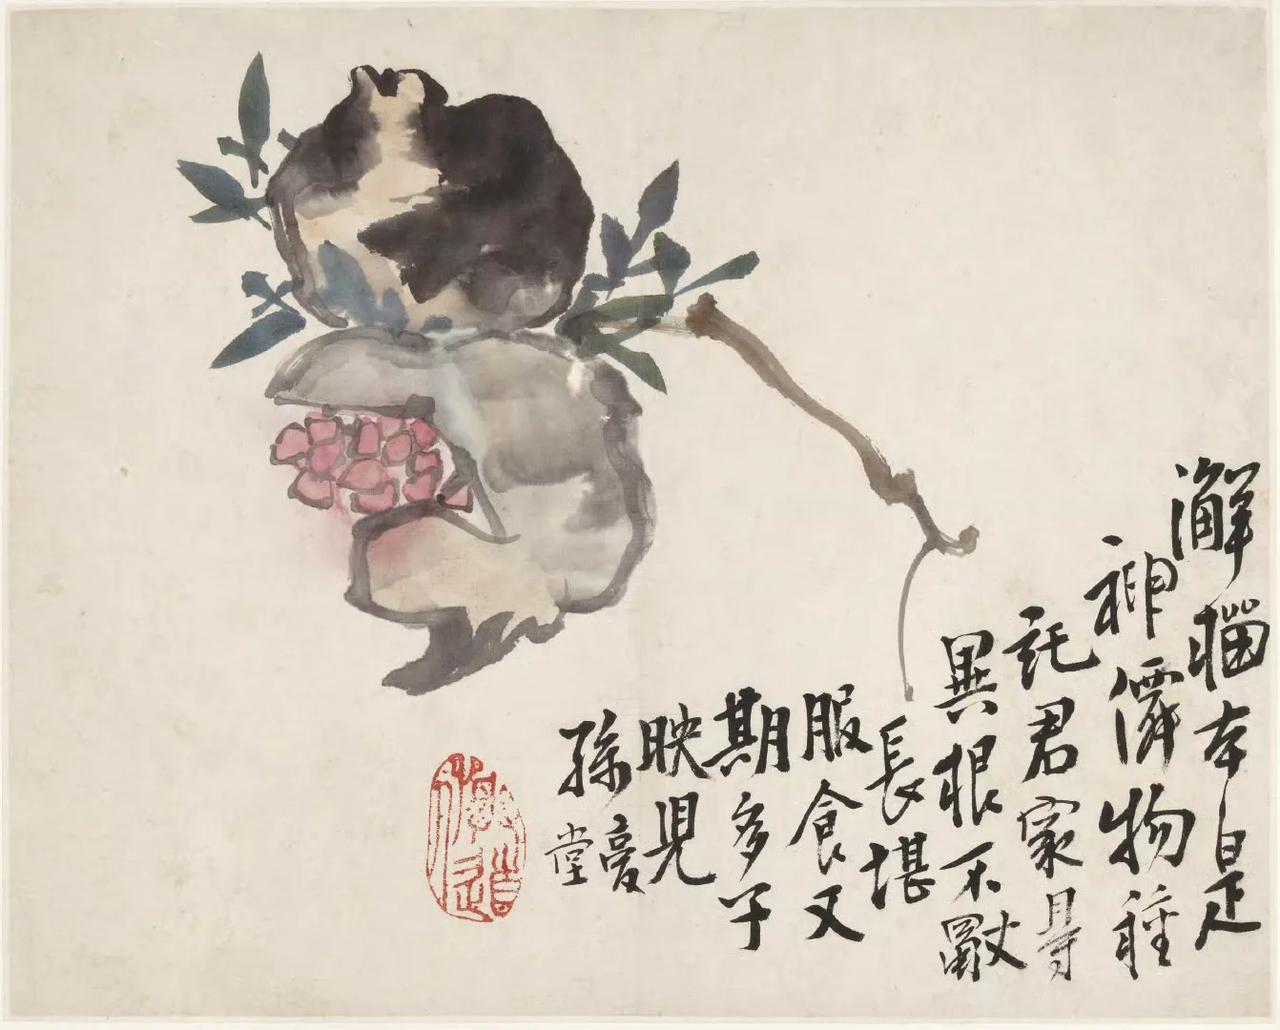 澥榴本是
神僊物種
託君家㝵
異根不
長堪
服食又
期多子
映兒
孫
复堂